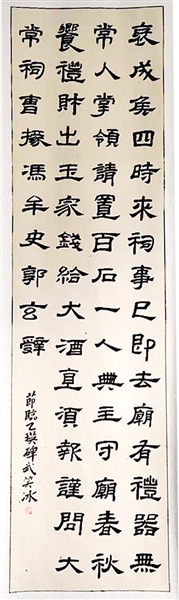 褒成矦四時來祠事已即去廟有禮器無
常人掌領請置百石一人典主守廟春秋
饗禮財出王家錢給大酒直須報謹問大
常祠曹掾馮牟史郭玄辭
節臨乙瑛碑武笑冰